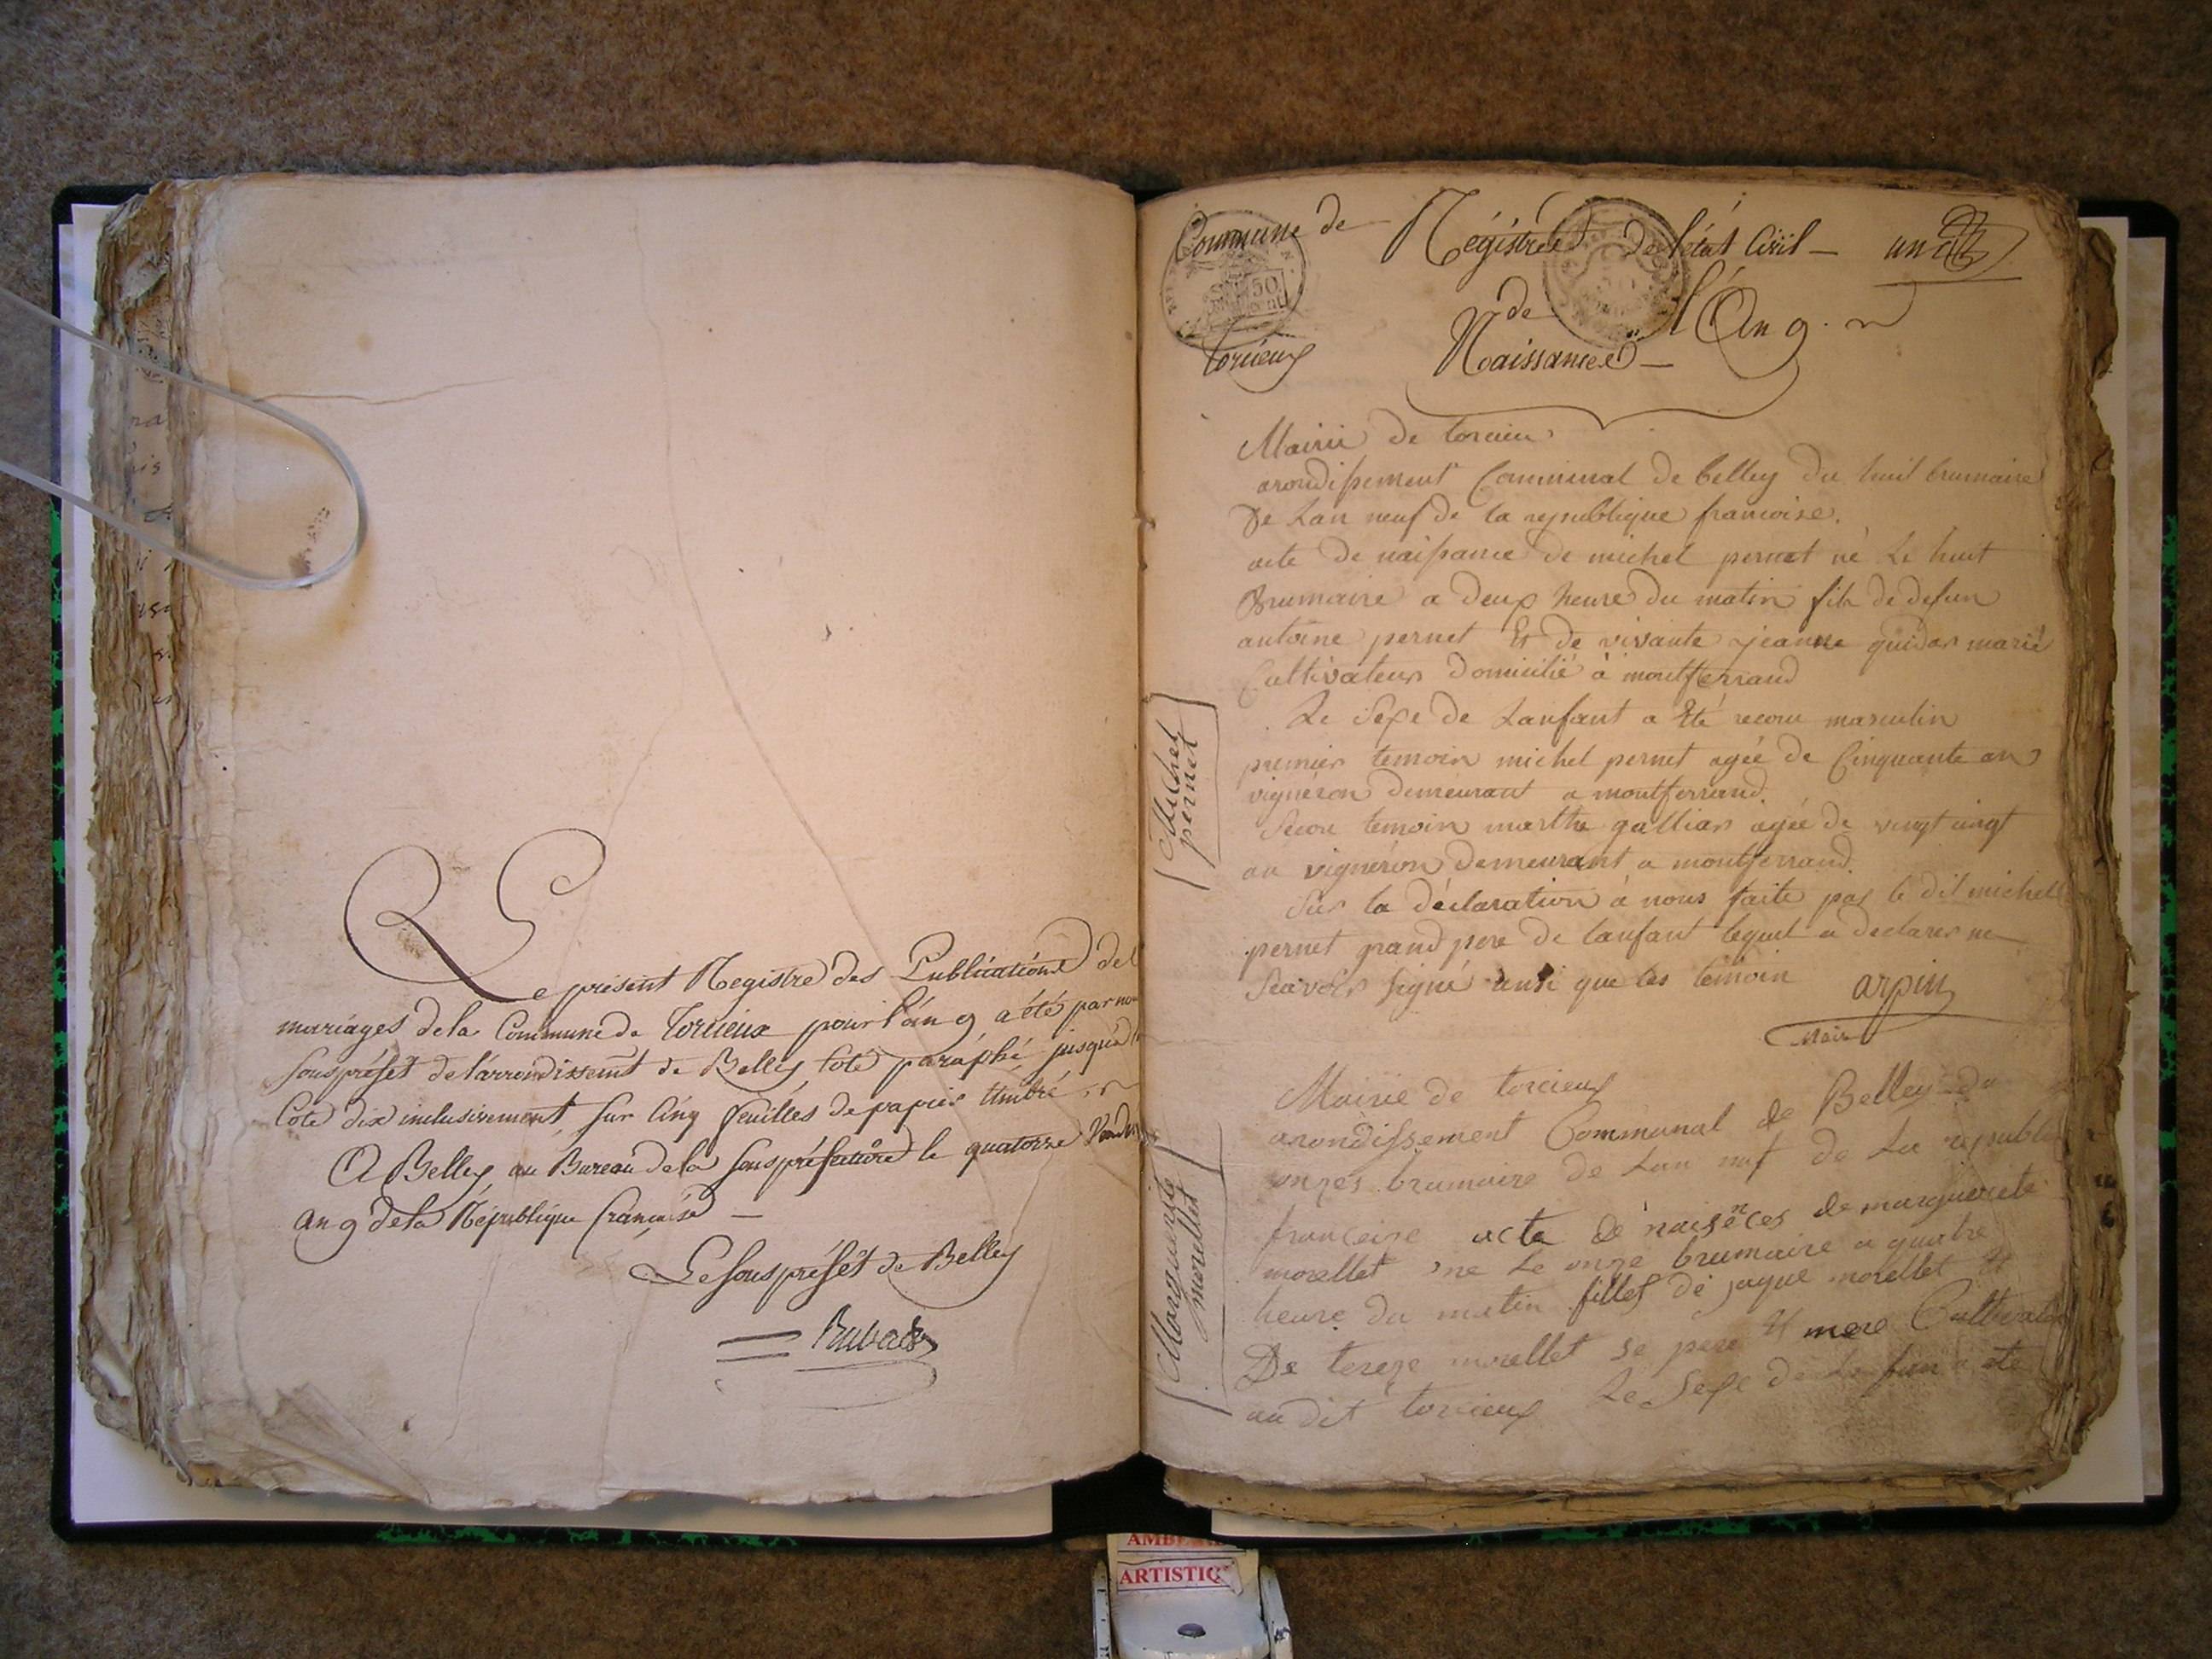 Le présent Registre des Publications de
mariages de la Commune de Torcieux pour l'an 9 a été par nou
sous préfet de l'arrondissemt de Belley coté paraphé jusqu'à
Cote dix inclusivement, sur cinq feuilles de papier timbré
A Belley au Bureau de la sous préfecture le quatorze Vendre
an 9 de la République française
Le sous préfet de Belley
Commune de
Torcieux
Régistre de l'état Civil un
de l'An 9.
Naissance
50
Mairie de torcieu
arondissement Communal de belley du huit brumaire
De Lan neuf de la republique francoise.
acte de naissance de michel pernet né Le huit
Brumaire a deux heure du matin fils de defun
antoine pernet Et de vivante jeanne guidar marié
Cultivateur domicilié à montferrand
Le Sexe de Lanfant a Eté reconu masculin
premier temoin michel pernet agée de Cinquante an
vigneron demeurant a montferrand.
Secon temoin marthe gallian agée de vingt cinqt
an vigneron demeurant a montferrand.
Sur la déclaration à nous faite par le dit michel
pernet grand pere de lanfant lequel a declarer ne
Scavoir signé ausi que les témoin arpin
Maire
Michel
pernet
Mairie de torcieux
arondissement Communal de Belley du
onzes brumaire de Lan neuf de La republi
franceise acte de naisences de marguerite
morellet né Le onze brumaire a quatre
heure du matin filles de jaque morellet Et
De tereze morellet se pere Et mere Cultivateu
au dit torcieux Le Sexe de Lanfan a ete
Marguerite
morellet
AMBE
ARTISTIQ